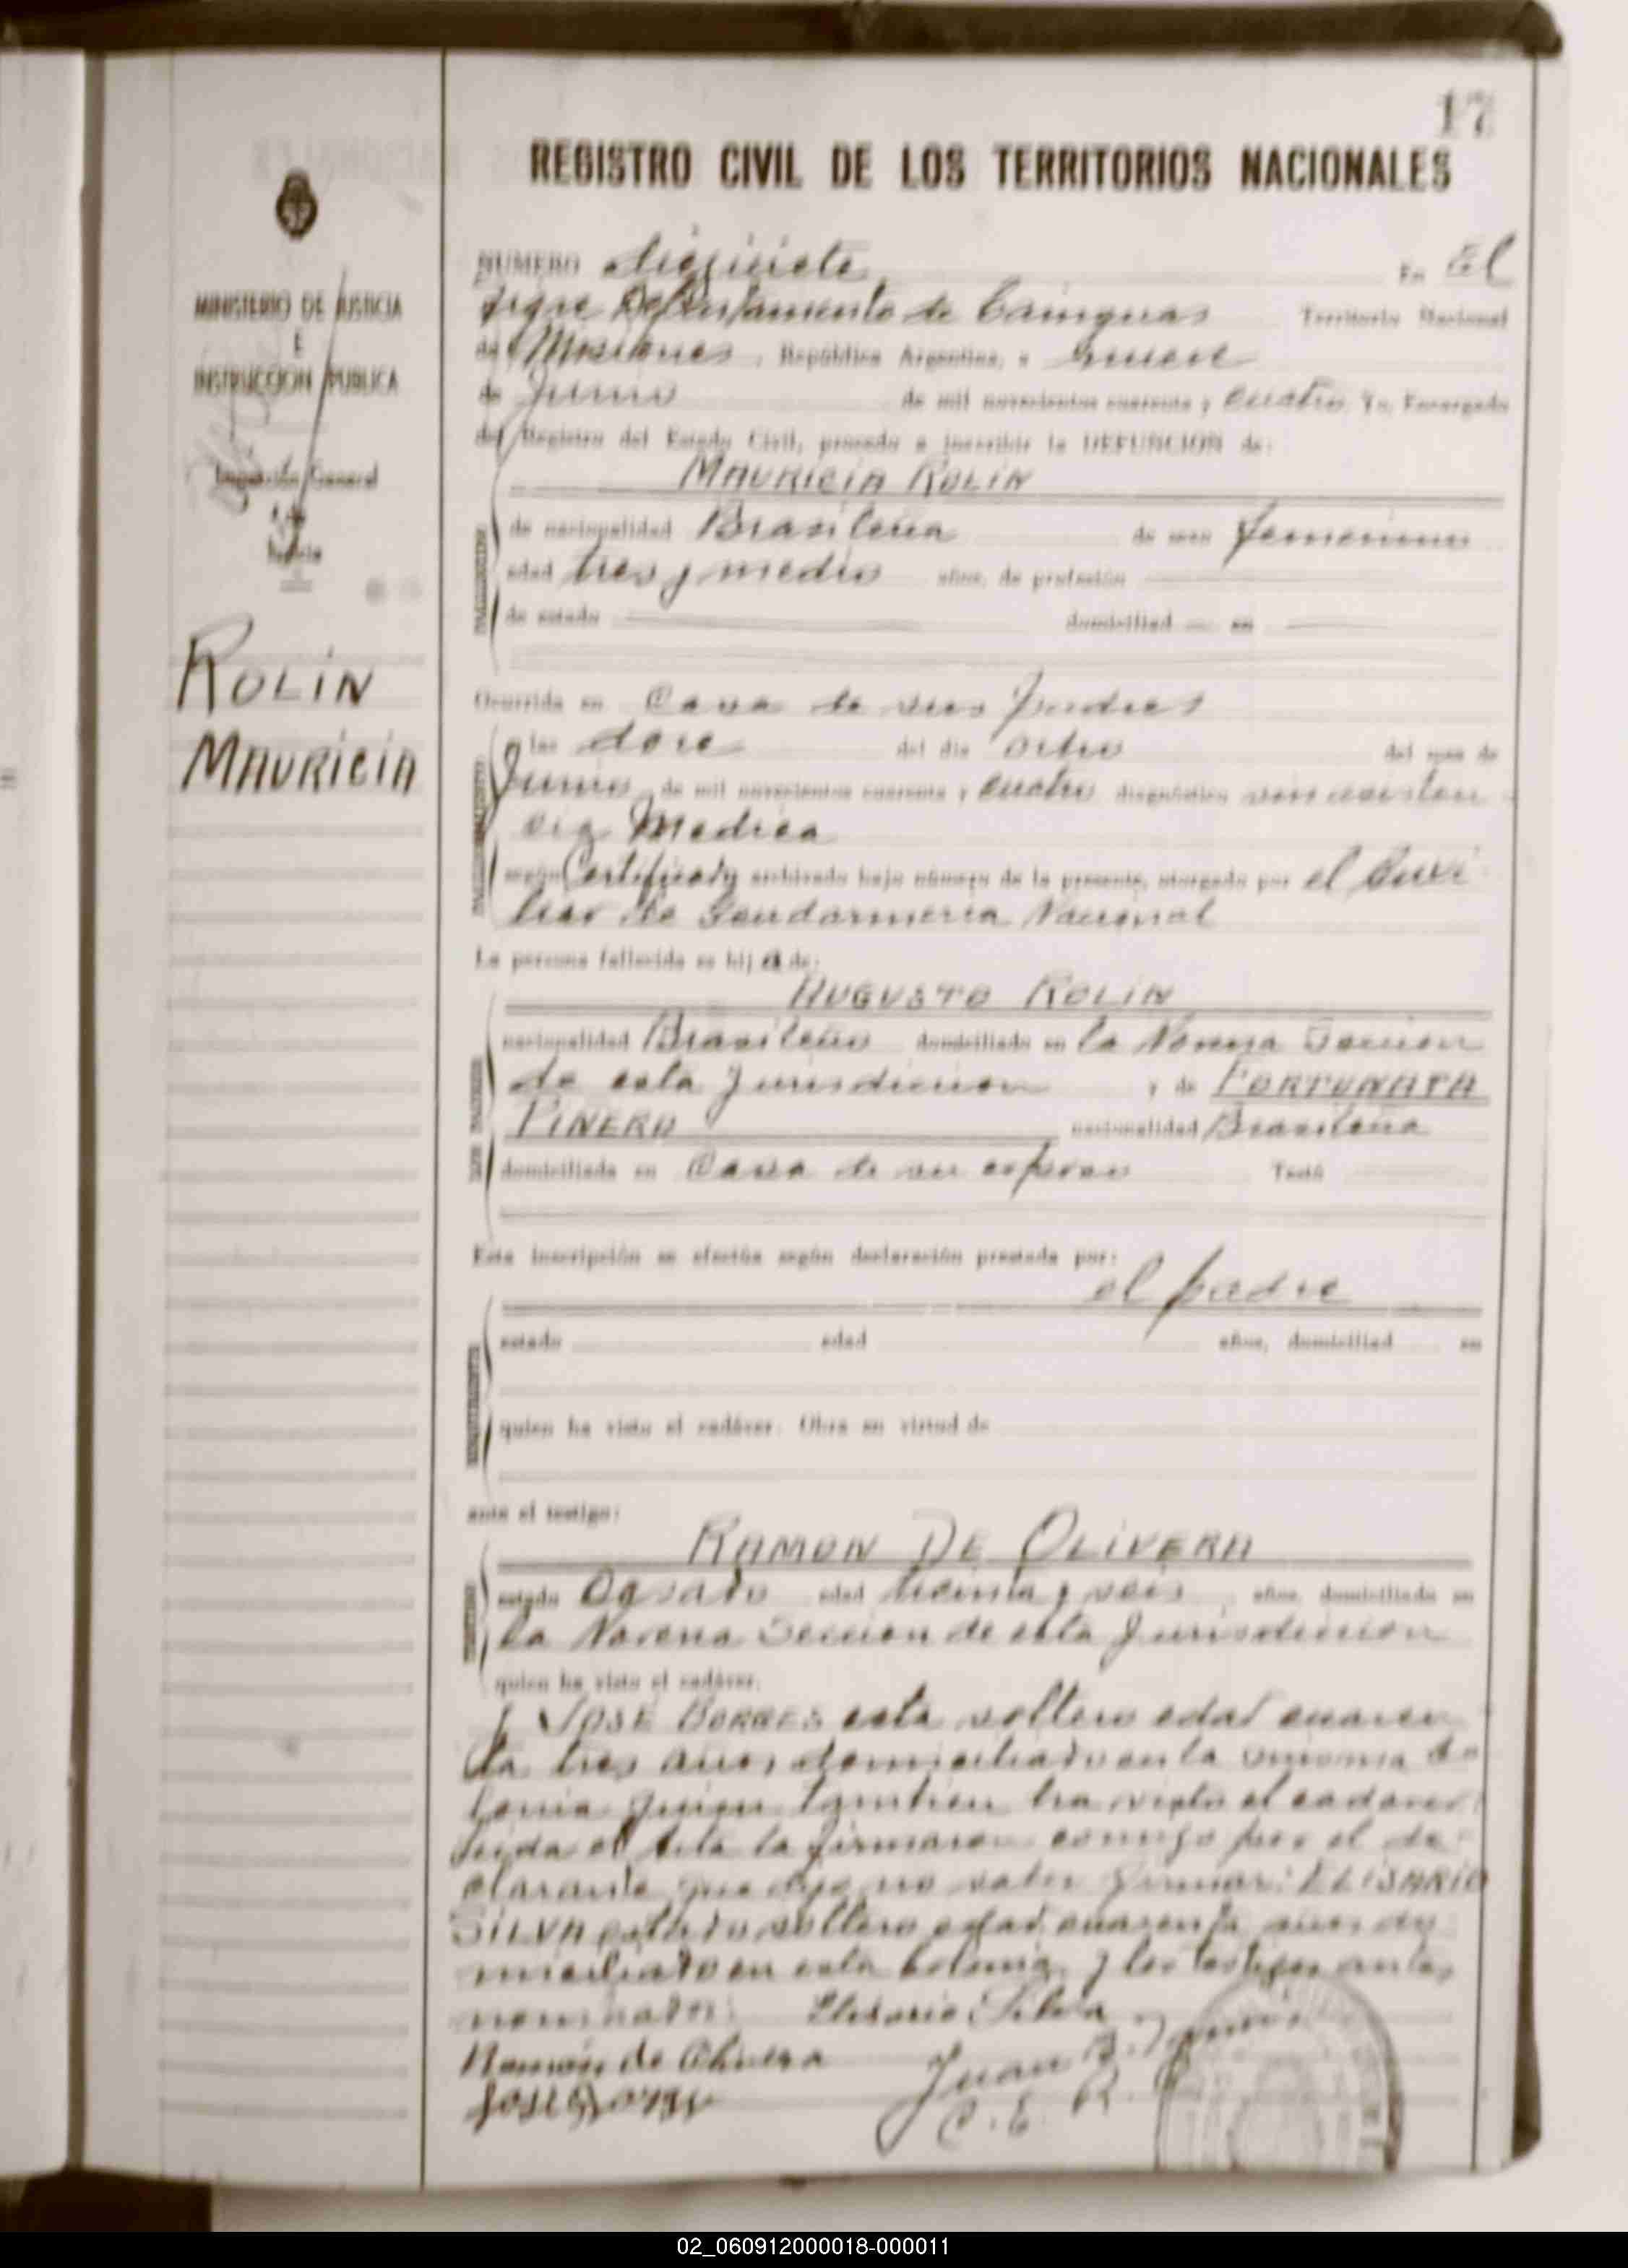 17
REGISTRO CIVIL DE LOS TERRITORIOS NACIONALES
MINISTERIO DE JUSTICIA
E
INSTRUCCION PUBLICA
Inspección General
de
Justicia
ROLIN
MAURICIA
NUMERO diezisiete En El
tigre Departamento de Cainguas Territorio Nacional
de Misiones, República Argentina, a nueve
de Junio de mil novecientos cuarenta y cuatro Yo, Encargado
del Registro del Estado Civil, procedo a inscribir la DEFUNCION de:
MAURICIA ROLIN
de nacionalidad Brasileña de sexo femenino
edad tres y medio años, de profesión
de estado domiciliad en
Ocurrida en Casa de sus padres
a las doce del día ocho del mes de
Junio de mil novecientos cuarenta y cuatro diagnóstico sin asisten
cia Medica
según Certificado archivado bajo número de la presente, otorgado por el
de Gendarmeria Nacional
La persona fallecida es hija de:
AUGUSTO ROLIN
nacionalidad Brasileño domiciliado en la Novena Seccion
de esta Jurisdiccion y de FORTUNATA
PINERO nacionalidad Brasileña
domiciliada en Casa de su esposo Testó
Esta inscripción se efectúa según declaración prestada por:
el padre
estado edad años, domiciliad en
quien ha visto el cadáver. Obra en virtud de
ante el testigo:
RAMON DE OLIVERA
estado Casado edad treinta y seis años, domiciliado en
la Novena Seccion de esta Jurisdiccion
quien ha visto el cadáver.
y JOSE BORGES esta soltero edad cuaren
ta tres años domiciliado en la misma Co
lonia quien tambien ha visto el cadaver
leida el Acta la firmaron conmigo por el de
clarante que dijo no saber firmar: ELISARIO
SILVA estado soltero edad cuarenta años do
miciliado en esta colonia y los testigos antes
nominados Elisario Silva
Ramón de Olivera Juan B.
José
02_060912000018-000011